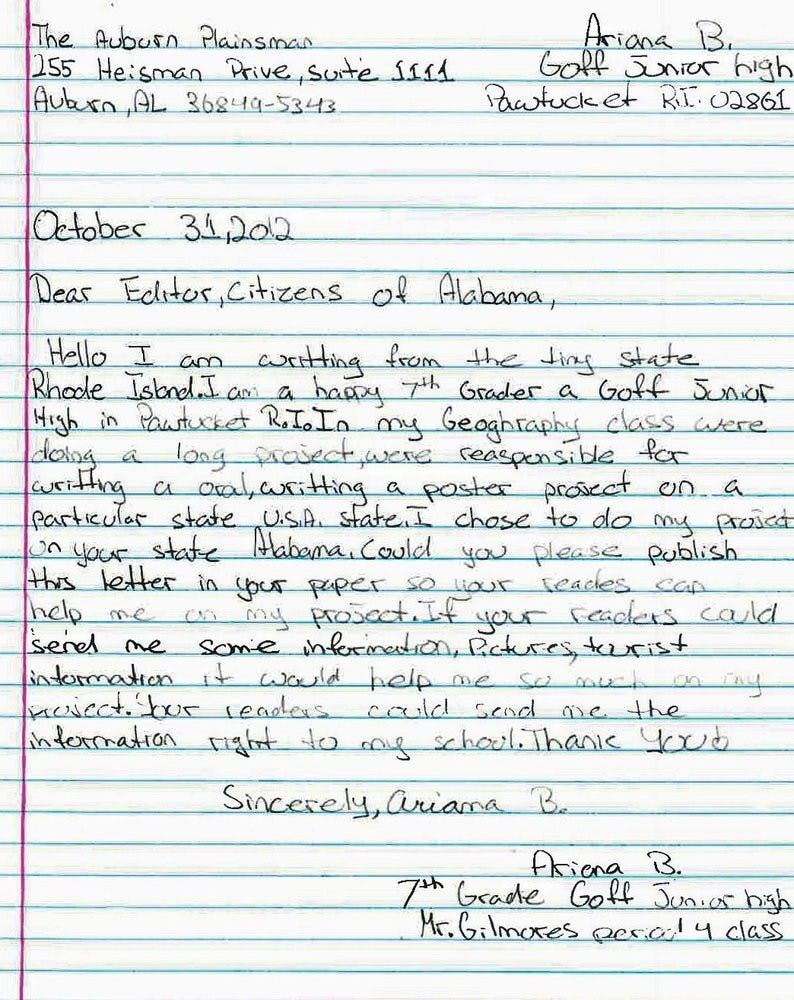 The Auburn Plainsman
Ariana B.
255 Heisman Drive, suite 1111
Goff Junior high
Auburn, AL 36849-5343
Pawtucket R.I. 02861
October 31, 2012
Dear Editor, Citizens of Alabama,
Hello I am writting from the tiny state
Rhode Island. I am a happy 7th Grader a Goff Junior
High in Pawtucket R.I. In my Geoghraphy class were
doing a long project, were reaspensible for
writting a oral, writting a poster project on a
particular state U.S.A. state. I chose to do my project
on your state Alabama. Could you please publish
this letter in your paper so your reades can
help me on my project. If your readers could
send me some information, Pictures, tourist
information it would help me so much on my
project. Your readers could send me the
information right to my school. Thank You
Sincerely, Ariana B.
Ariana B.
7th Grade Goff Junior high
Mr. Gilmores period 4 class